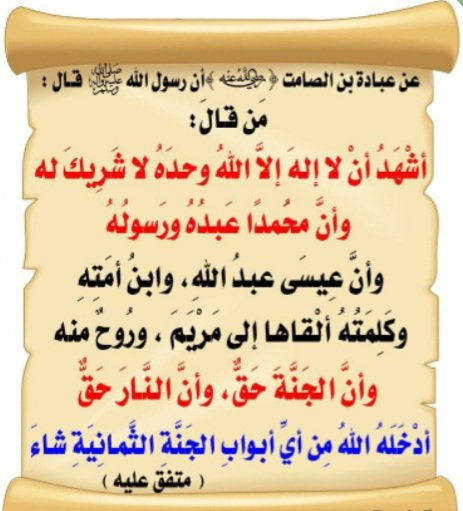 عن عبادة بن الصامت ﴿رضي الله عنه﴾ أن رسول الله ﷺ قال :
مَن قالَ:
أشْهَدُ أنْ لا إلهَ إلاَّ اللهُ وحدَهُ لا شَرِيكَ له
وأنَّ محُمدًا عَبدُهُ ورَسولُهُ
وأنَّ عِيسَى عبدُ اللهِ، وابنُ أمَتِهِ
وكَلِمَتُهُ ألْقاها إلى مَرْيَمَ ، ورُوحٌ منه
وأنَّ الجَنَّةَ حَقٌّ، وأنَّ النَّارَ حَقٌّ
أدْخَلَهُ اللهُ مِن أيِّ أبوابِ الجَنَّةِ الثَّمانِيَةِ شاءَ
( متفق عليه )